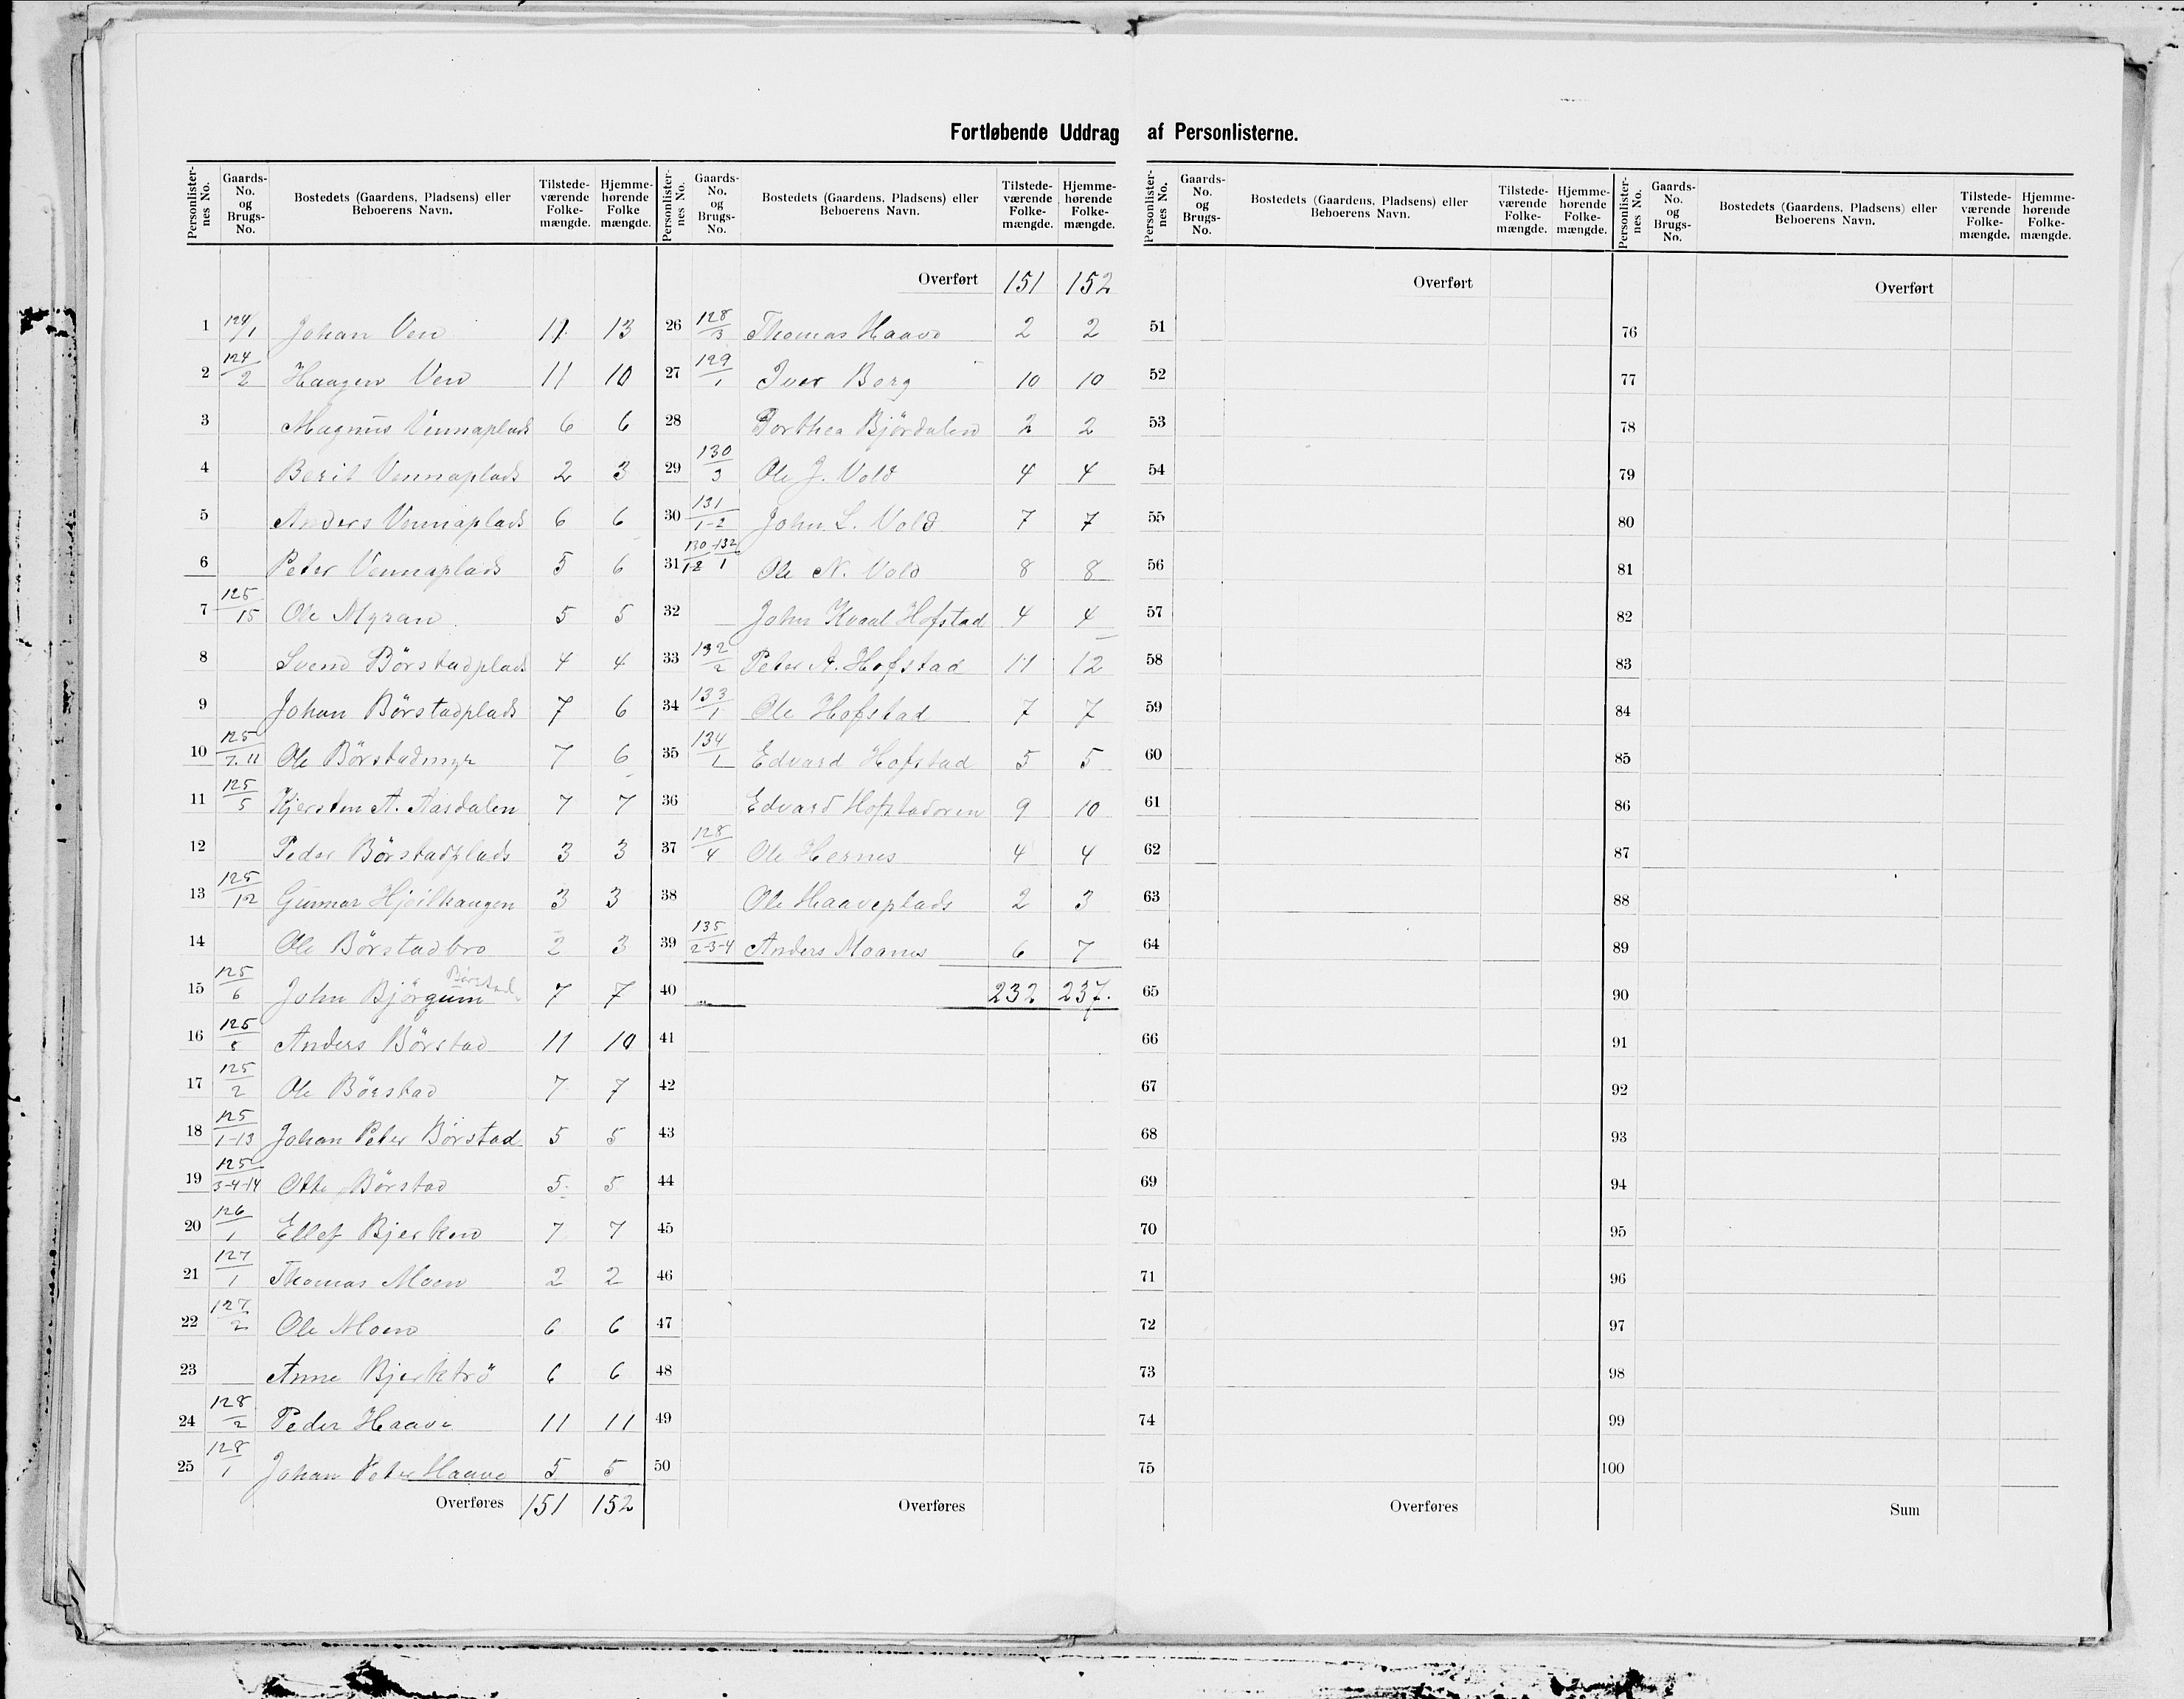 Fortløbende Uddrag af Personlisterne.
Personlister-nes No. Gaards-No. og Brugs-No. Bostedets (Gaardens, Pladsens) eller Beboerens Navn. Tilstede-værende Folke-mængde. Hjemme-hørende Folke mængde.
1 124/1 Johan Ven 11 13
2 124/2 Haagen Ven 11 10
3 Magnus Vennaplads 6 6
4 Berit Vennaplads 2 3
5 Anders Vennaplads 6 6
6 Peter Vennaplads 5 6
7 125/15 Ole Myran 5 5
8 Svend Börstadplads 4 4
9 Johan Börstadplads 7 6
10 125/7.11 Ole Börstadmyr 7 6
11 125/5 Kjersten A. Aasdalen 7 7
12 Peder Börstadplads 3 3
13 125/12 Gunnar Hjeilhaugen 3 3
14 Ole Börstadbro 2 3
15 125/6 John Bjørgum Börstad 7 7
16 125/8 Anders Börstad 11 10
17 125/2 Ole Börstad 7 7
18 125/1-13 Johan Peter Börstad 5 5
19 125/3-4-14 Otte Börstad 5 5
20 126/1 Ellef Bjerken 7 7
21 127/1 Thomas Moen 2 2
22 127/2 Ole Moen 6 6
23 Anne Bjerktrö 6 6
24 128/2 Peder Haave 11 11
25 128/1 Johan Peter Haave 5 5
Overføres 151 152
Personlister-nes No. Gaards-No. og Brugs-No. Bostedets (Gaardens, Pladsens) eller Beboerens Navn. Tilstede-værende Folke-mængde. Hjemme-hørende Folke-mængde.
Overført 151 152
26 128/3 Thomas Haave 2 2
27 129/1 Iver Berg 10 10
28 Dorthea Björdalen 2 2
29 130/3 Ole J. Vold 4 4
30 131/1-2 John L. Vold 7 7
31 130/1-2 132/1 Ole N. Vold 8 8
32 John Kvaal Hofstad 4 4
33 132/2 Peter A. Hofstad 11 12
34 133/1 Ole Hofstad 7 7
35 134/1 Edvard Hofstad 5 5
36 Edvard Hofstadoren 9 10
37 128/4 Ole Hernes 4 4
38 Ole Haaveplads 2 3
39 135/2-3-4 Anders Moanes 6 7
40 232 237.
41
42
43
44
45
46
47
48
49
50
Overføres
Personlister-nes No. Gaards-No. og Brugs-No. Bostedets (Gaardens, Pladsens) eller Beboerens Navn. Tilstede-værende Folke-mængde. Hjemme-hørende Folke-mængde.
Overført
51
52
53
54
55
56
57
58
59
60
61
62
63
64
65
66
67
68
69
70
71
72
73
74
75
Overføres
Personlister-nes No. Gaards-No. og Brugs-No. Bostedets (Gaardens, Pladsens) eller Beboerens Navn. Tilstede-værende Folke-mængde. Hjemme-hørende Folke-mængde.
Overført
76
77
78
79
80
81
82
83
84
85
86
87
88
89
90
91
92
93
94
95
96
97
98
99
100
Sum